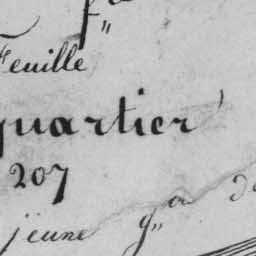 Feuille
quartier
207
jeune g"on de